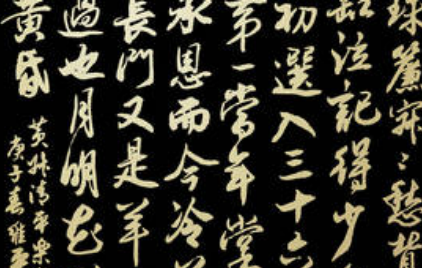 珠簾寂〻愁背
缸泣記得少
初選入三十六
第一當年掌
承恩而今冷
長門又是羊
過也月明花
黃昏
黃昇清平樂
庚子春雅